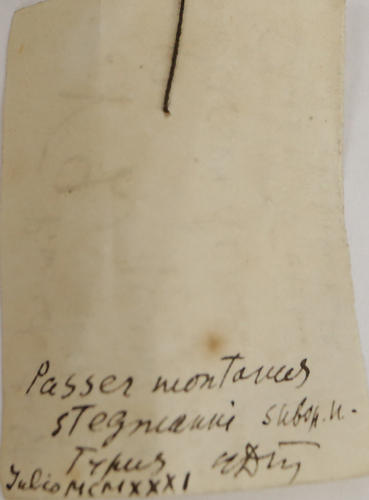 Passer montanus
stegmanni subsp. n.
Typus
Julio MCMXXXI